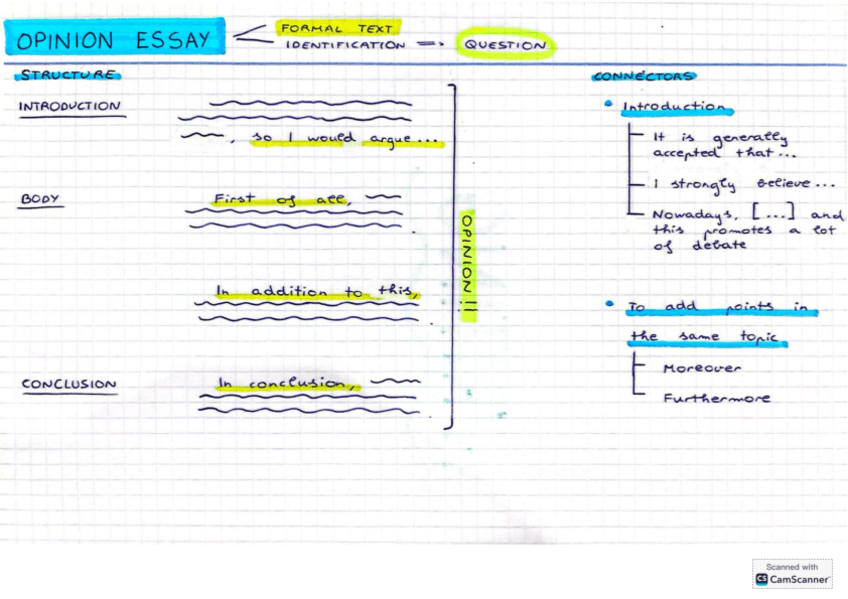 OPINION ESSAY
FORMAL TEXT
IDENTIFICATION => QUESTION
STRUCTURE
INTRODUCTION
, so I would argue...
BODY
First of all,
.
In addition to this,
.
CONCLUSION
In conclusion,
.
OPINION!!
CONNECTORS
• Introduction
It is generally
accepted that...
I strongly believe...
Nowadays, [...] and
this promotes a lot
of debate
• To add points in
the same topic
Moreover
Furthermore
Scanned with
CS CamScanner